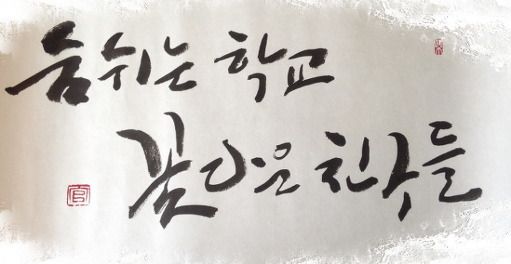 숨쉬는 학교
꽃다운 친구들